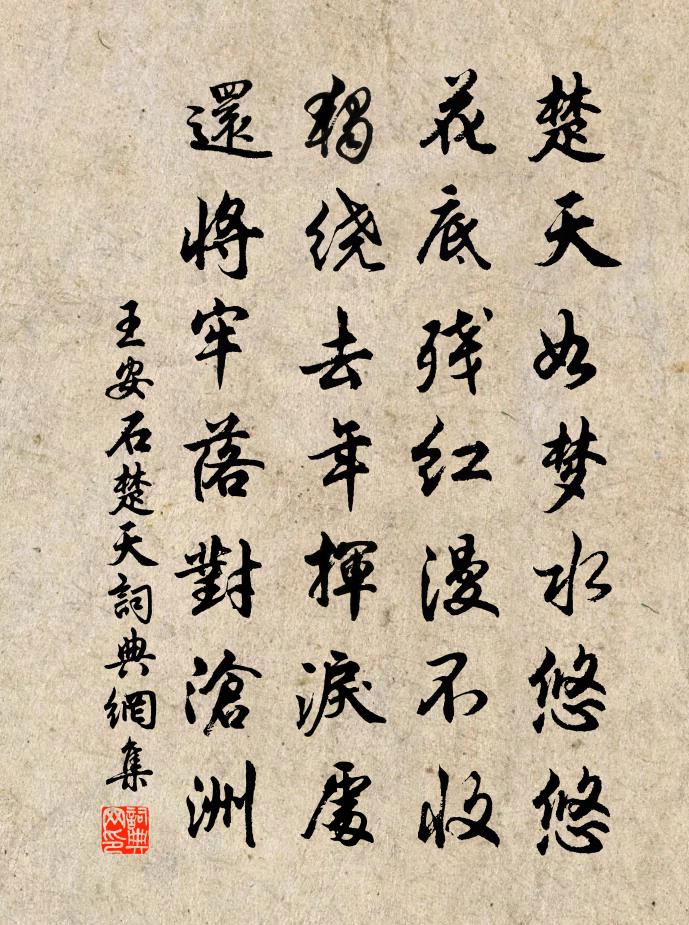 楚天如梦水悠悠
花底残红漫不收
独绕去年揮淚處
還將牢落對滄洲
王安石楚天詞典網集
詞典网印